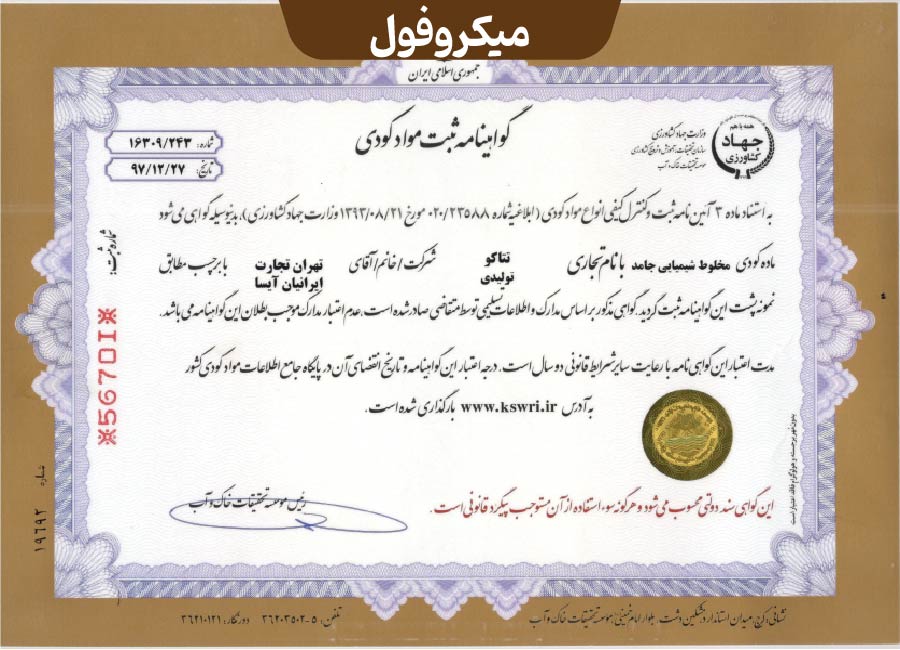 میکروفول
جمهوری اسلامی ایران
گواهینامه ثبت مواد کودی
شماره: ۱۶۳۰۹/۲۴۳
تاریخ: ۹۷/۱۲/۲۷
همه با هم
جهاد
کشاورزی
وزارت جهاد کشاورزی
سازمان تحقیقات، آموزش و ترویج کشاورزی
موسسه تحقیقات خاک و آب
به استناد ماده ۳ آئین نامه ثبت و کنترل کیفی انواع مواد کودی (ابلاغیه شماره ۰۲۰/۲۳۵۸۸ مورخ ۱۳۹۳/۰۸/۲۱ وزارت جهاد کشاورزی)، بدینوسیله گواهی می شود
ماده کودی مخلوط شیمیایی جامد با نام تجاری نتاگو تولیدی شرکت/خانم/آقای تهران تجارت ایرانیان آیسا با برچسب مطابق
نمونه پشت این گواهینامه ثبت گردید. گواهی مذکور بر اساس مدارک و اطلاعات تسلیمی توسط متقاضی صادر شده است. عدم اعتبار مدارک موجب بطلان این گواهینامه می باشد.
مدت اعتبار این گواهی نامه با رعایت سایر شرایط قانونی دو سال است. درجه اعتبار این گواهینامه و تاریخ انقضای آن در پایگاه جامع اطلاعات مواد کودی کشور
به آدرس www.kswri.ir بارگذاری شده است.
رئیس موسسه تحقیقات خاک و آب
این گواهی سند دولتی محسوب می شود و هرگونه سوء استفاده از آن مستوجب پیگرد قانونی است.
شماره ثبت:
※56701※
شماره
۱۹۶۹۲
بدون مهر برجسته و هولوگرام فاقد اعتبار است
نشانی: کرج، میدان استاندارد، مشکین دشت، بلوار امام خمینی، موسسه تحقیقات خاک و آب
تلفن: ۵-۳۶۲۰۳۵۰۲ دورنگار: ۳۶۲۱۰۱۲۱